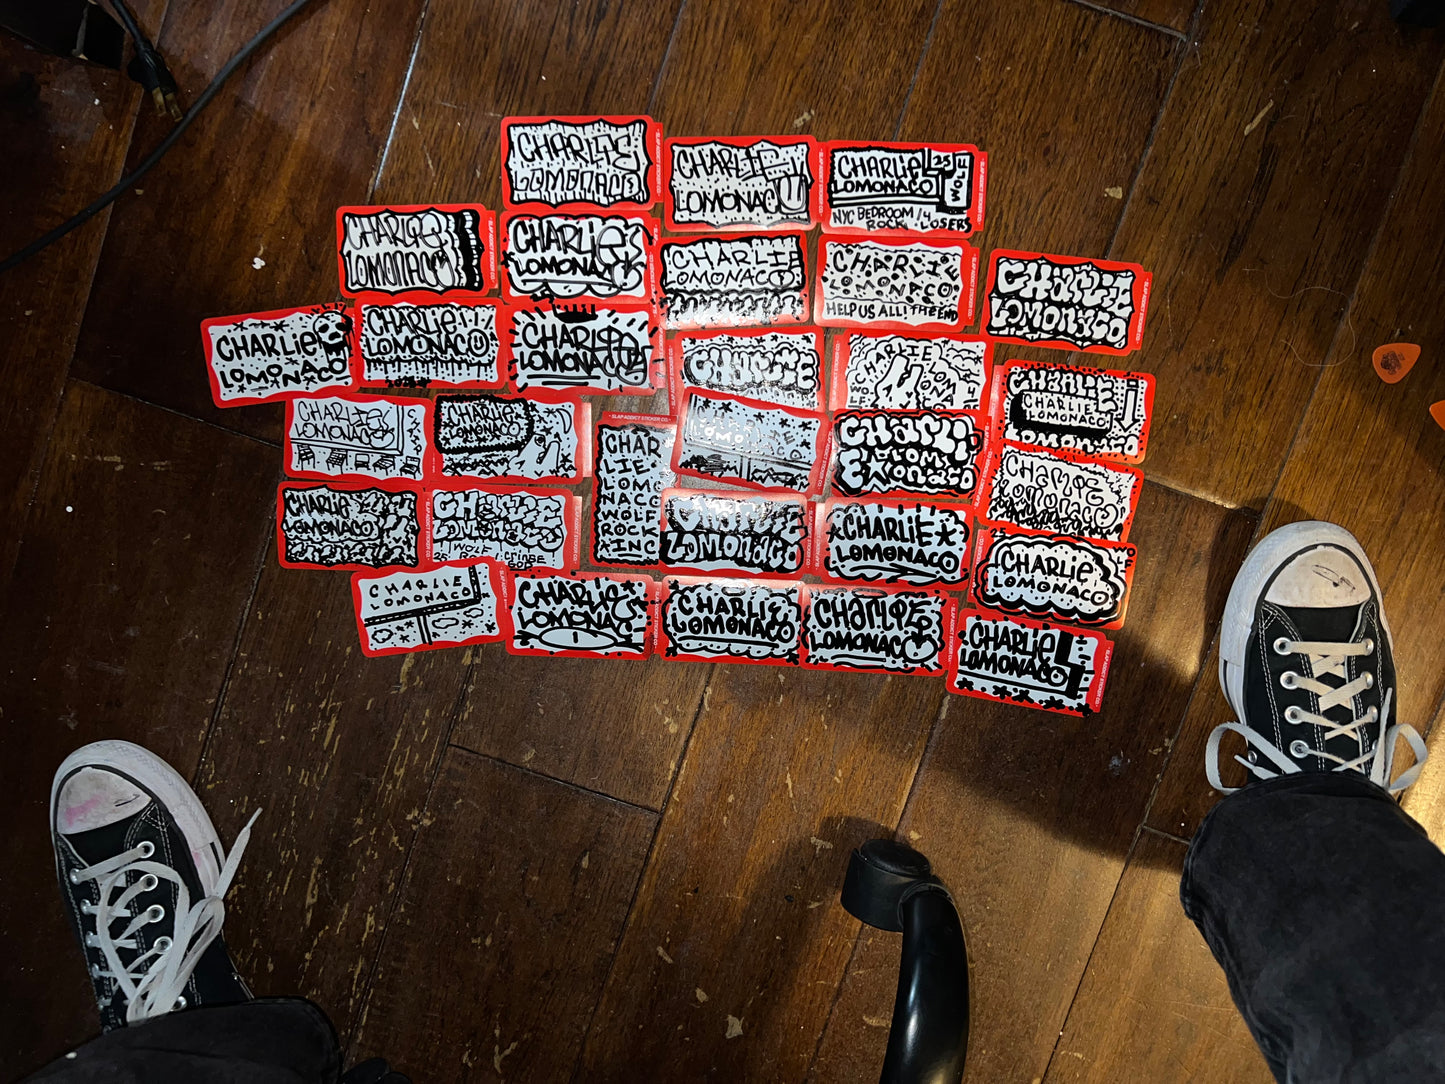 CHARLIE
LOMONACO
CHARLIE
LOMONACO
CHARLIE
LOMONACO
25
WOLF
NYC BEDROOM / 4
ROCK LOSERS
CHARLIE
LOMONACO
CHARLIE
LOMONACO
CHARLIE
LOMONACO
CHARLIE
LOMONACO
HELP US ALL! THE END
CHARLIE
LOMONACO
CHARLIE
LOMONACO
CHARLIE
LOMONACO
CHARLIE
LOMONACO
CHARLIE
CHARLIE
LOMONACO
CHARLIE
CHARLIE
LOMONACO
LOMONACO
CHARLIE
LOMONACO
CHARLIE
LOMONACO
SLAP ADDICT STICKER CO.
CHAR
LIE
LOMO
NACO
WOLF
ROCK
INC
LOMO
CHARLIE
LOMONACO
CHARLIE
LOMONACO
CHARLIE
LOMONACO
CHARLIE
LOMONACO
WOLF
CHARLIE
LOMONACO
CHARLIE
LOMONACO
25
CHARLIE
LOMONACO
CHARLIE
LOMONACO
CHARLIE
LOMONACO
CHARLIE
LOMONACO
CHARLIE
LOMONACO
CHARLIE
LOMONACO